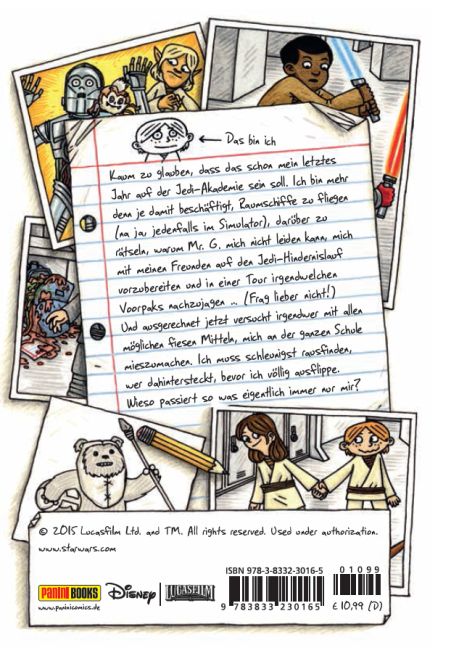 Das bin ich
Kaum zu glauben, dass das schon mein letztes
Jahr auf der Jedi-Akademie sein soll. Ich bin mehr
denn je damit beschäftigt, Raumschiffe zu fliegen
(na ja, jedenfalls im Simulator), darüber zu
rätseln, warum Mr. G. mich nicht leiden kann, mich
mit meinen Freunden auf den Jedi-Hindernislauf
vorzubereiten und in einer Tour irgendwelchen
Voorpaks nachzujagen ... (Frag lieber nicht!)
Und ausgerechnet jetzt versucht irgendwer mit allen
möglichen fiesen Mitteln, mich an der ganzen Schule
mieszumachen. Ich muss schleunigst rausfinden,
wer dahintersteckt, bevor ich völlig ausflippe.
Wieso passiert so was eigentlich immer nur mir?
© 2015 Lucasfilm Ltd. and TM. All rights reserved. Used under authorization.
www.starwars.com
PANINI BOOKS
www.paninicomics.de
Disney
LUCASFILM
ISBN 978-3-8332-3016-5
9 783833 230165
01099
€ 10,99 (D)